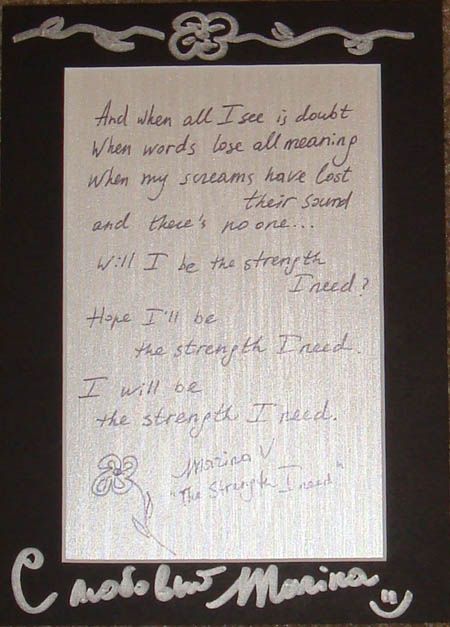 And when all I see is doubt
When words lose all meaning
When my screams have lost
their sound
and there's no one...
Will I be the strength
I need?
Hope I'll be
the strength I need.
I will be
the strength I need.
Marina V
"The Strength I need"
С любовью Marina